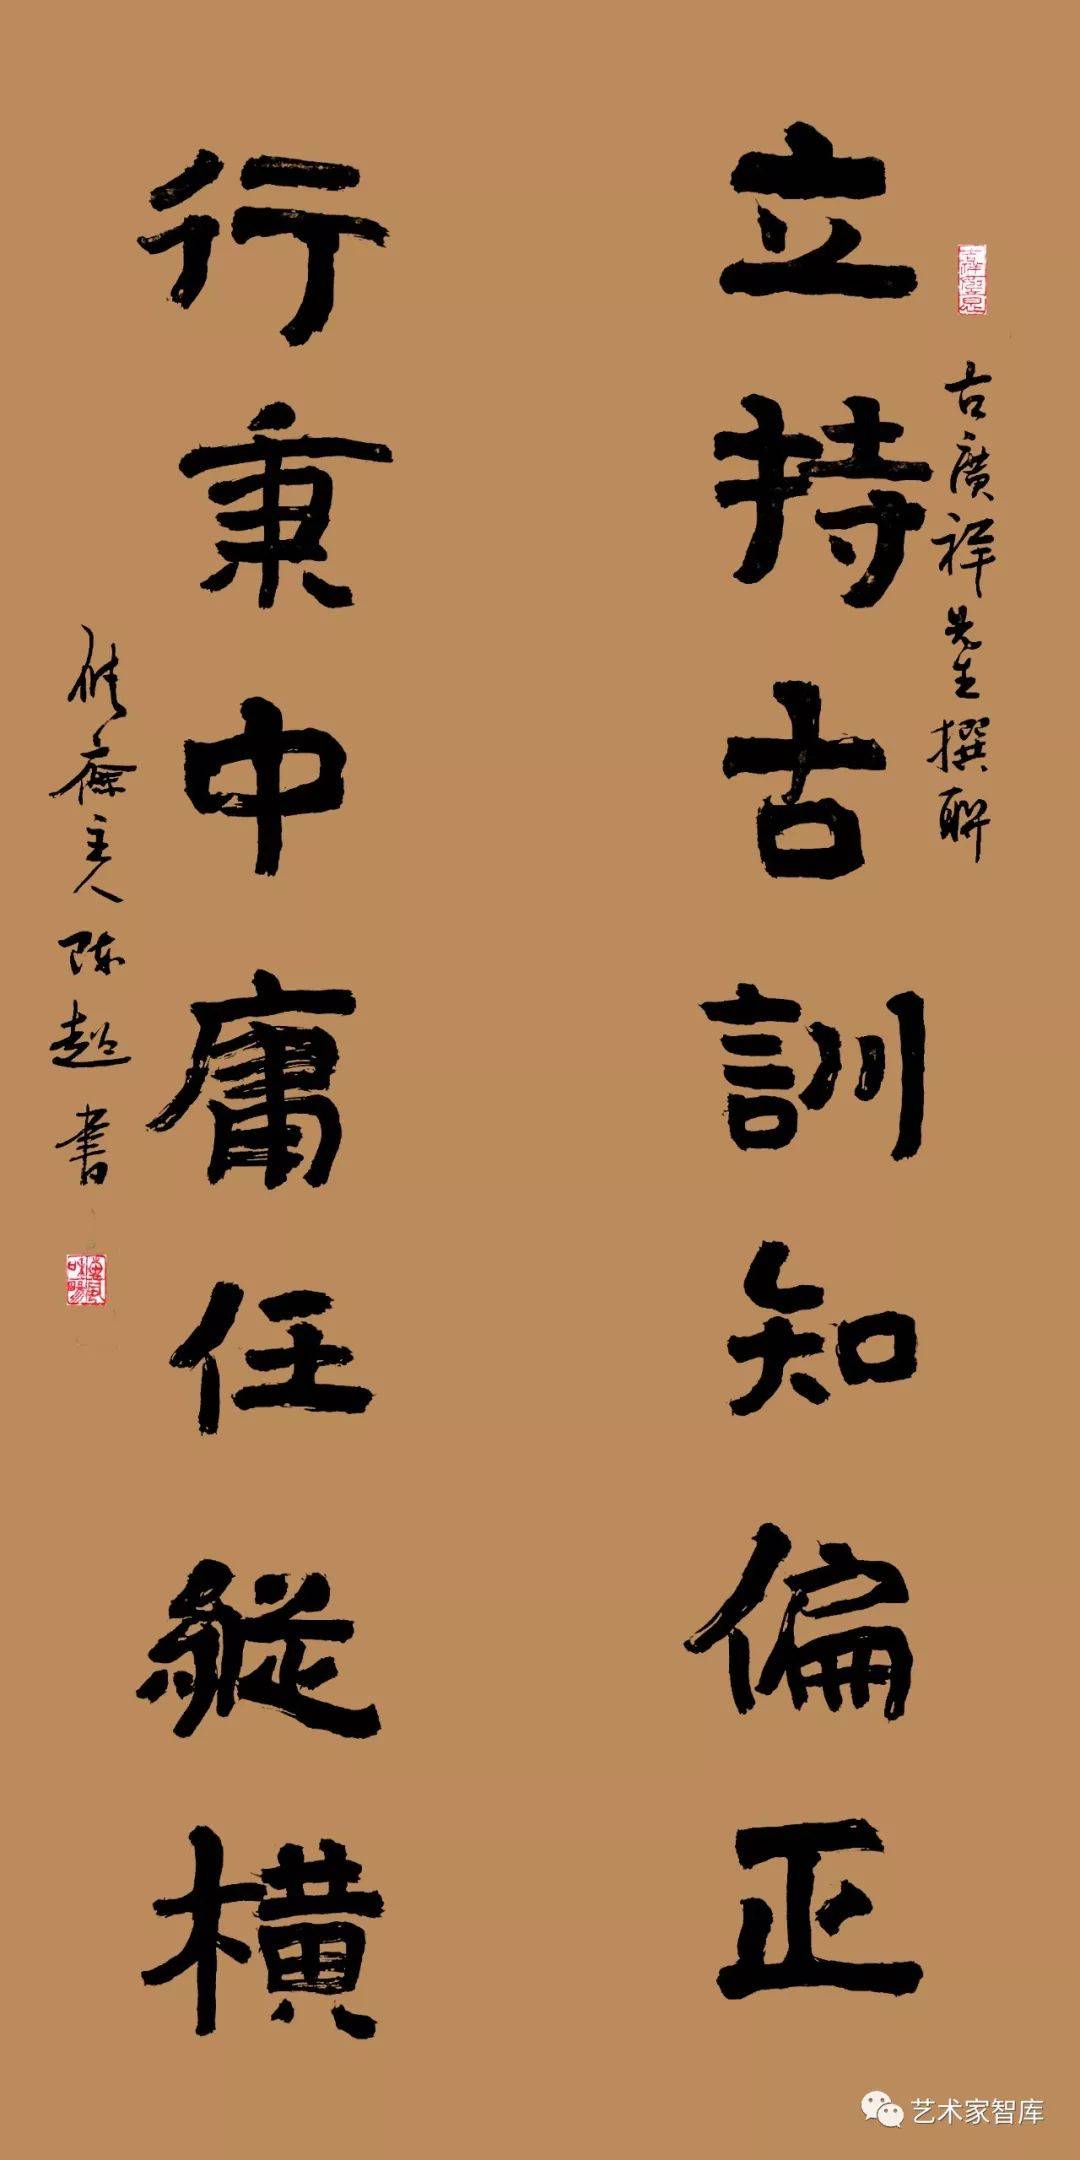 古廣祥先生撰聯
立持古訓知偏正
行秉中庸任縱橫
主人陳超書
艺术家智库